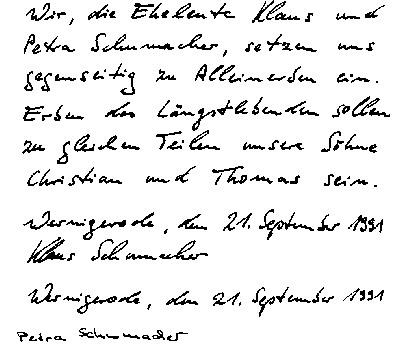 Wir, die Eheleute Klaus und
Petra Schumacher, setzen uns
gegenseitig zu Alleinerben ein.
Erben des Längstlebenden sollen
zu gleichen Teilen unsere Söhne
Christian und Thomas sein.
Wernigerode, den 21. September 1991
Klaus Schumacher
Wernigerode, den 21. September 1991
Petra Schumacher